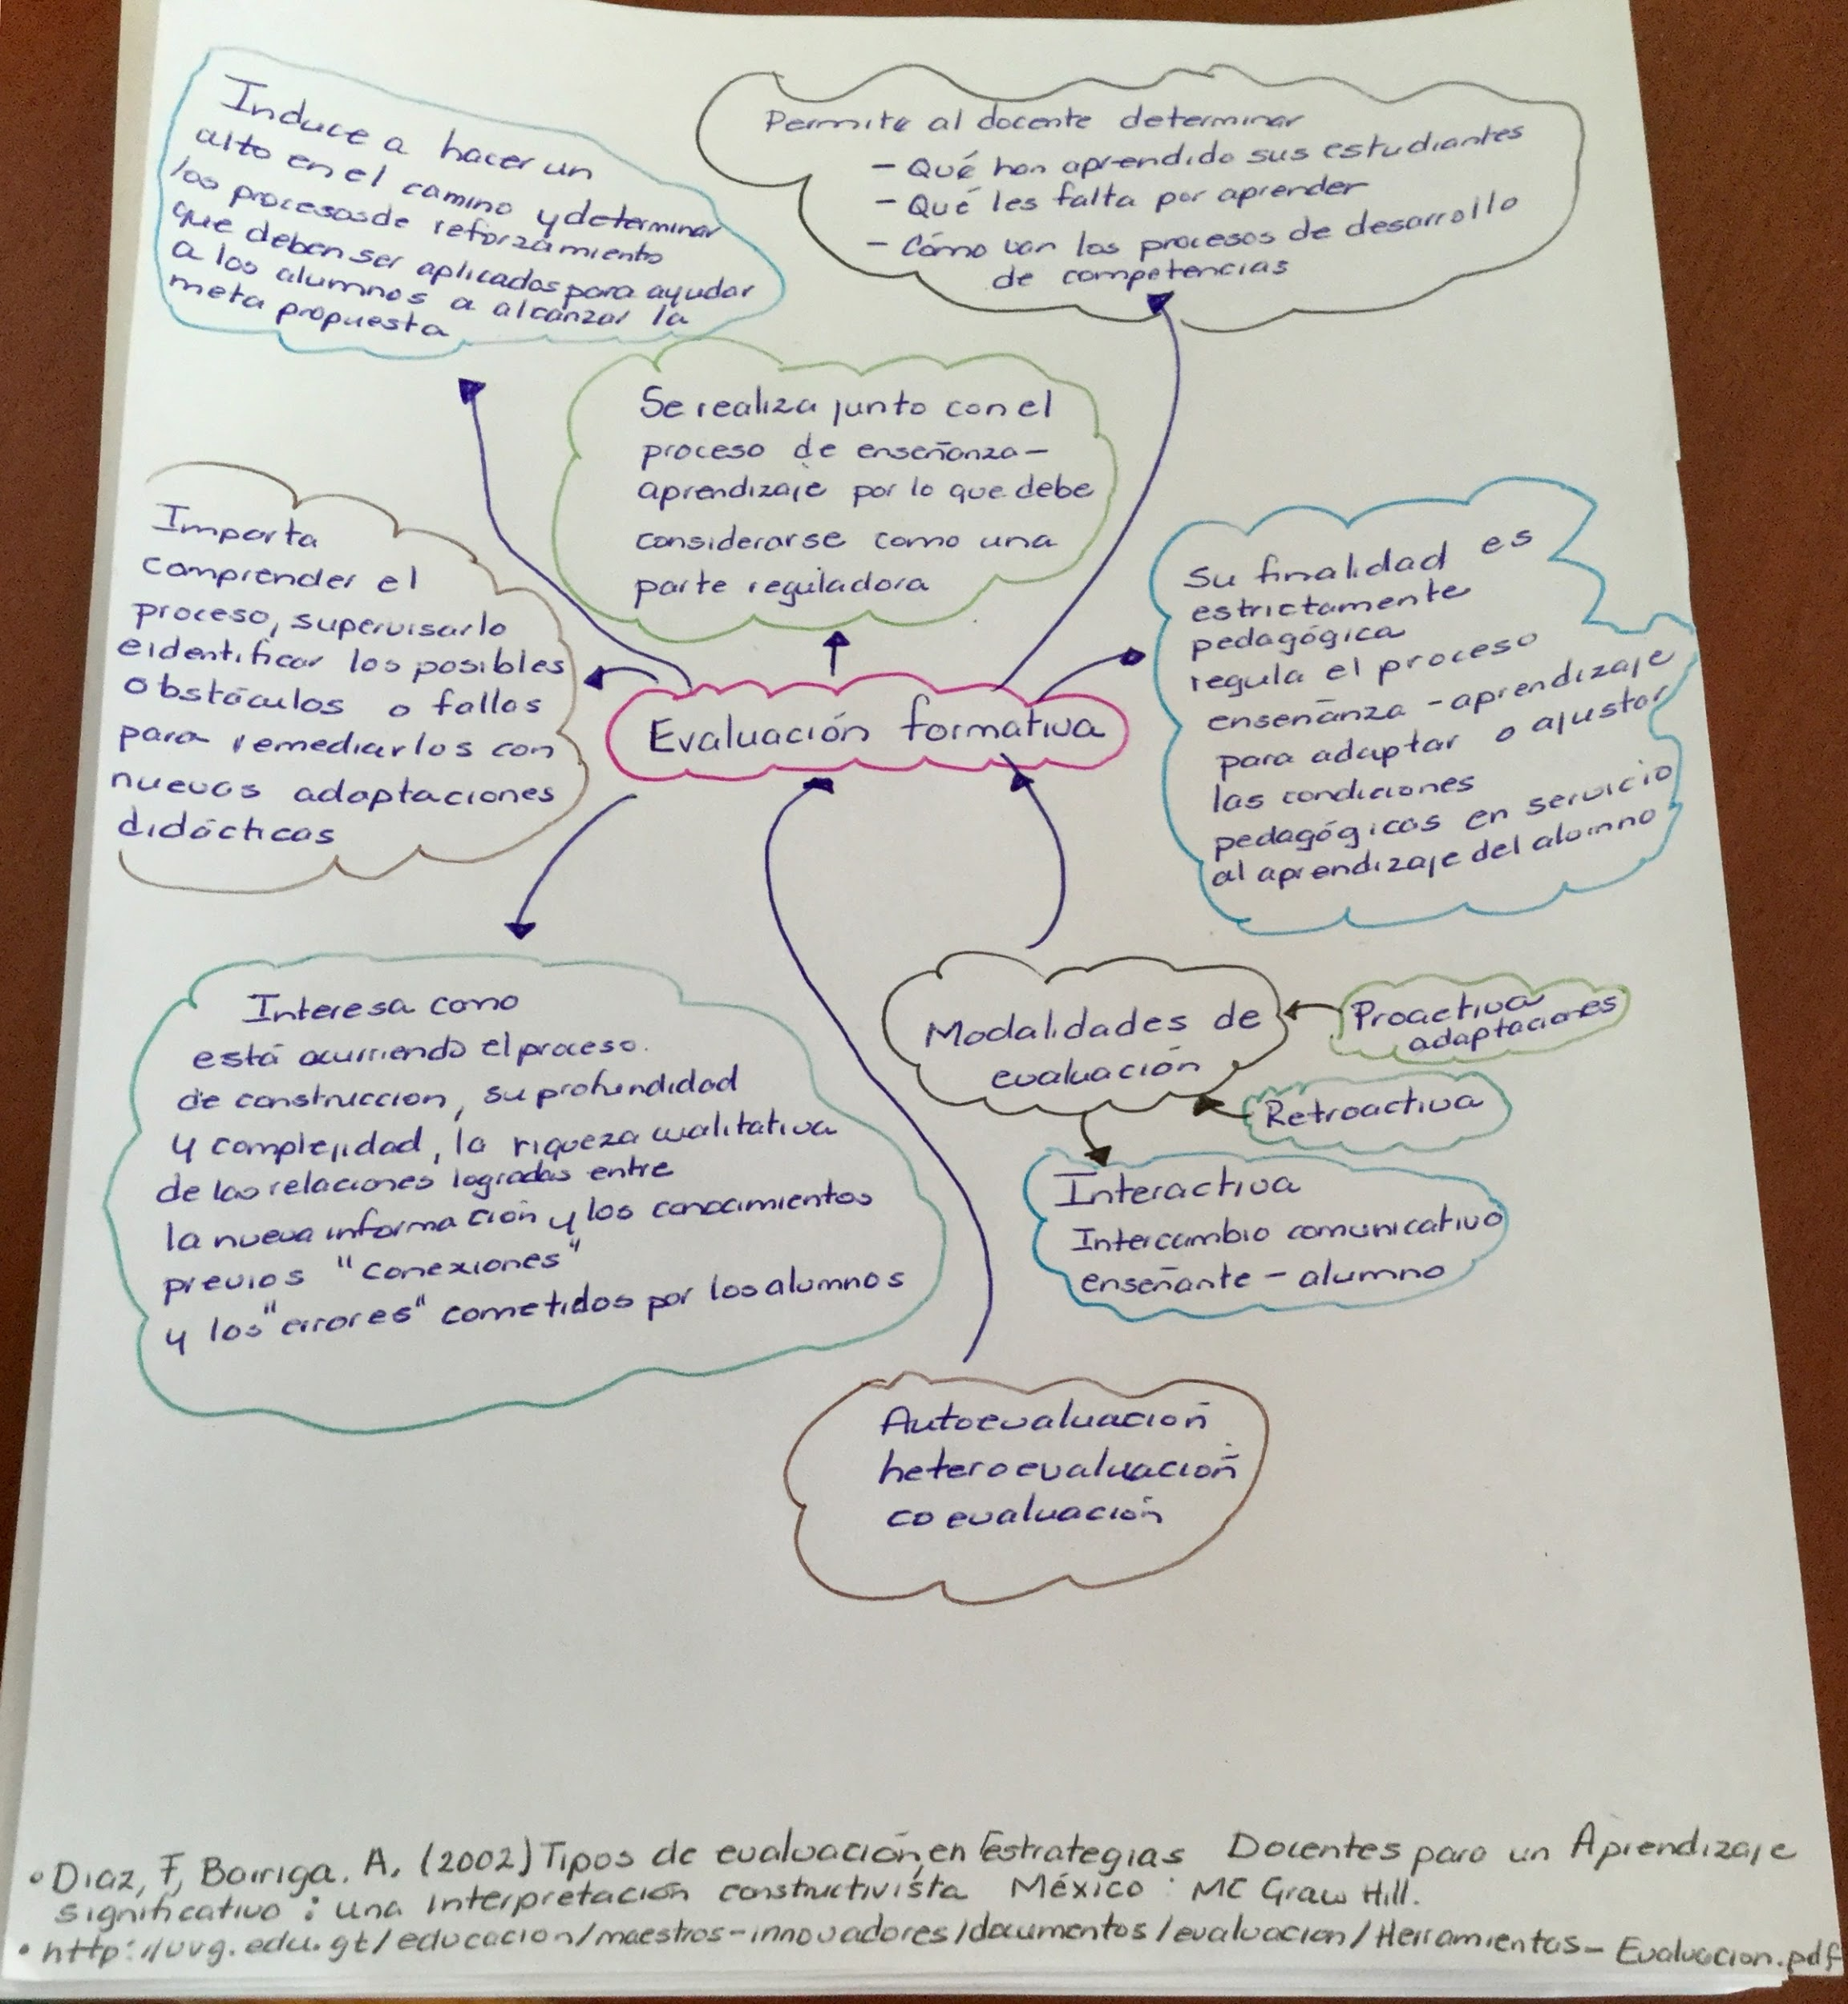 Induce a hacer un
alto en el camino y determinar
los procesos de reforzamiento
que deben ser aplicados para ayudar
a los alumnos a alcanzar la
meta propuesta
Permite al docente determinar
- Qué han aprendido sus estudiantes
- Qué les falta por aprender
- Cómo van los procesos de desarrollo
de competencias
Se realiza junto con el
proceso de enseñanza-
aprendizaje por lo que debe
considerarse como una
parte reguladora
Importa
comprender el
proceso, supervisarlo
e identificar los posibles
obstáculos o fallas
para remediarlos con
nuevas adaptaciones
didácticas
Su finalidad es
estrictamente
pedagógica
regula el proceso
enseñanza - aprendizaje
para adaptar o ajustar
las condiciones
pedagógicas en servicio
al aprendizaje del alumno
Evaluación formativa
Interesa como
está ocurriendo el proceso.
de construccion, su profundidad
y complejidad, la riqueza cualitativa
de las relaciones logradas entre
la nueva información y los conocimientos
previos "conexiones"
y los "errores" cometidos por los alumnos
Modalidades de
evaluación
Proactiva
adaptaciones
Retroactiva
Interactiva
Intercambio comunicativo
enseñante - alumno
Autoevaluación
heteroevaluación
coevaluación
• Diaz, F, Barriga. A, (2002) Tipos de evaluación, en Estrategias Docentes para un Aprendizaje
significativo: una Interpretación constructivista México: MC Graw Hill.
• http://uvg.edu.gt/educacion/maestros-innovadores/documentos/evaluacion/Herramientas-Evaluacion.pdf